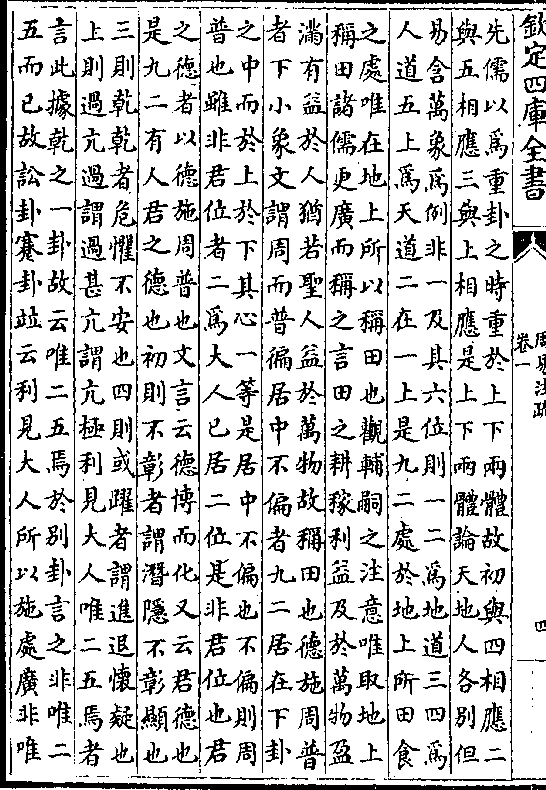 欽定四庫全書
周易注疏
卷一
四
先儒以爲重卦之時重於上下兩體故初與四相應二
與五相應三與上相應是上下兩體論天地人各別但
易含萬象爲例非一及其六位則一二爲地道三四爲
人道五上爲天道二在一上是九二處於地上所田食
之處唯在地上所以稱田也觀輔嗣之注意唯取地上
稱田諸儒更廣而稱之言田之耕稼利益及於萬物盈
滿有益於人猶若聖人益於萬物故稱田也德施周普
者下小象文謂周而普徧居中不偏者九二居在下卦
之中而於上於下其心一等是居中不偏也不偏則周
普也雖非君位者二爲大人已居二位是非君位也君
之德者以德施周普也文言云德博而化又云君德也
是九二有人君之德也初則不彰者謂潛隱不彰顯也
三則乾乾者危懼不安也四則或躍者謂進退懷疑也
上則過亢過謂過甚亢謂亢極利見大人唯二五焉者
言此據乾之一卦故云唯二五焉於別卦言之非唯二
五而已故訟卦蹇卦竝云利見大人所以施處廣非唯